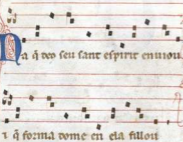 a q̃ deus seu sant espirit enuiou
i q̃ forma dome en ela fillou